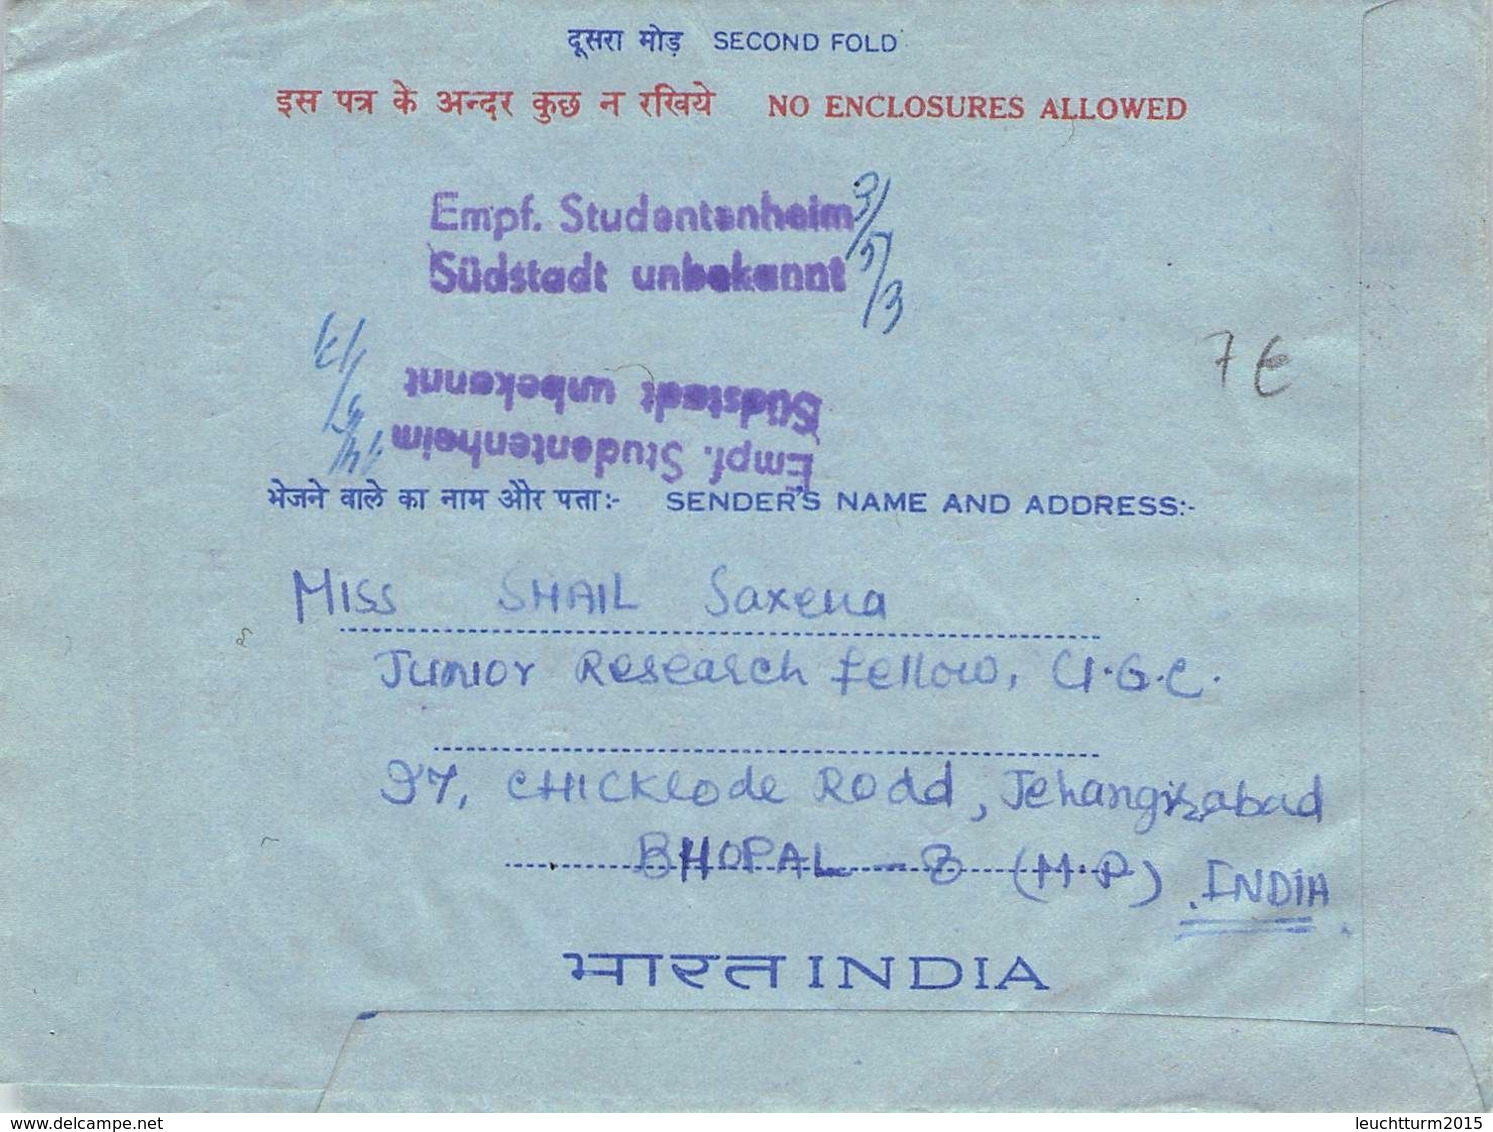 दूसरा मोड़ SECOND FOLD
इस पत्र के अन्दर कुछ न रखिये NO ENCLOSURES ALLOWED
Empf. Studentenheim
Südstadt unbekannt
7 €
Empf. Studentenheim
Südstadt unbekannt
भेजने वाले का नाम और पता:- SENDER'S NAME AND ADDRESS:-
MISS SHAIL Saxena
Junior Research Fellow, U.G.C.
97, CHICKLODE ROAD, Jehangirabad
BHOPAL - 8 (M.P) INDIA
भारत INDIA
delcampe.net
leuchtturm2015